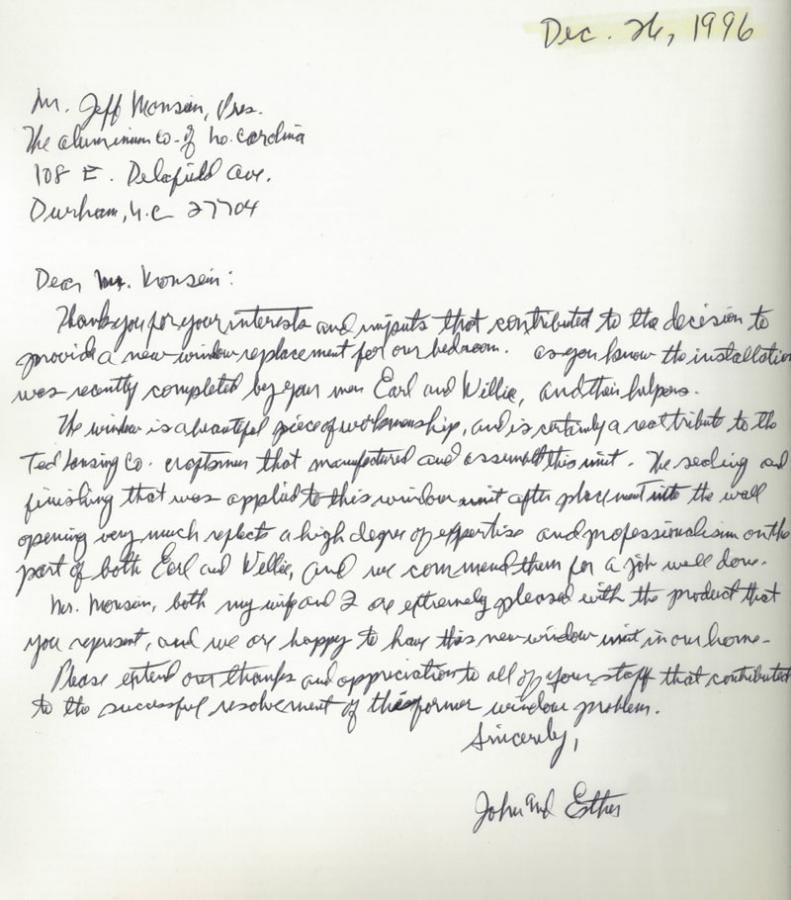 Dec. 26, 1996
Mr. Jeff Monsein, Pres.
The aluminium co. of no. carolina
108 E. Delafield ave.
Durham, N.C 27704
Dear Mr. Monsein:
Thank you for your interests and inputs that contributed to the decision to
provide a new window replacement for our bedroom. as you know the installation
was recently completed by your men Earl and Willie, and their helpers.
The window is a beautiful piece of workmanship, and is certainly a real tribute to the
Ted Lansing Co. craftsmen that manufactured and assembled this unit. The sealing and
finishing that was applied to this window unit after placement into the wall
opening very much reflects a high degree of expertise and professionalism on the
part of both Earl and Willie, and we commend them for a job well done.
Mr. Monsein, both my wife and I are extremely pleased with the product that
you represent, and we are happy to have this new window unit in our home.
Please extend our thanks and appreciation to all of your staff that contributed
to the successful resolvement of this former window problem.
Sincerely,
John and Esther